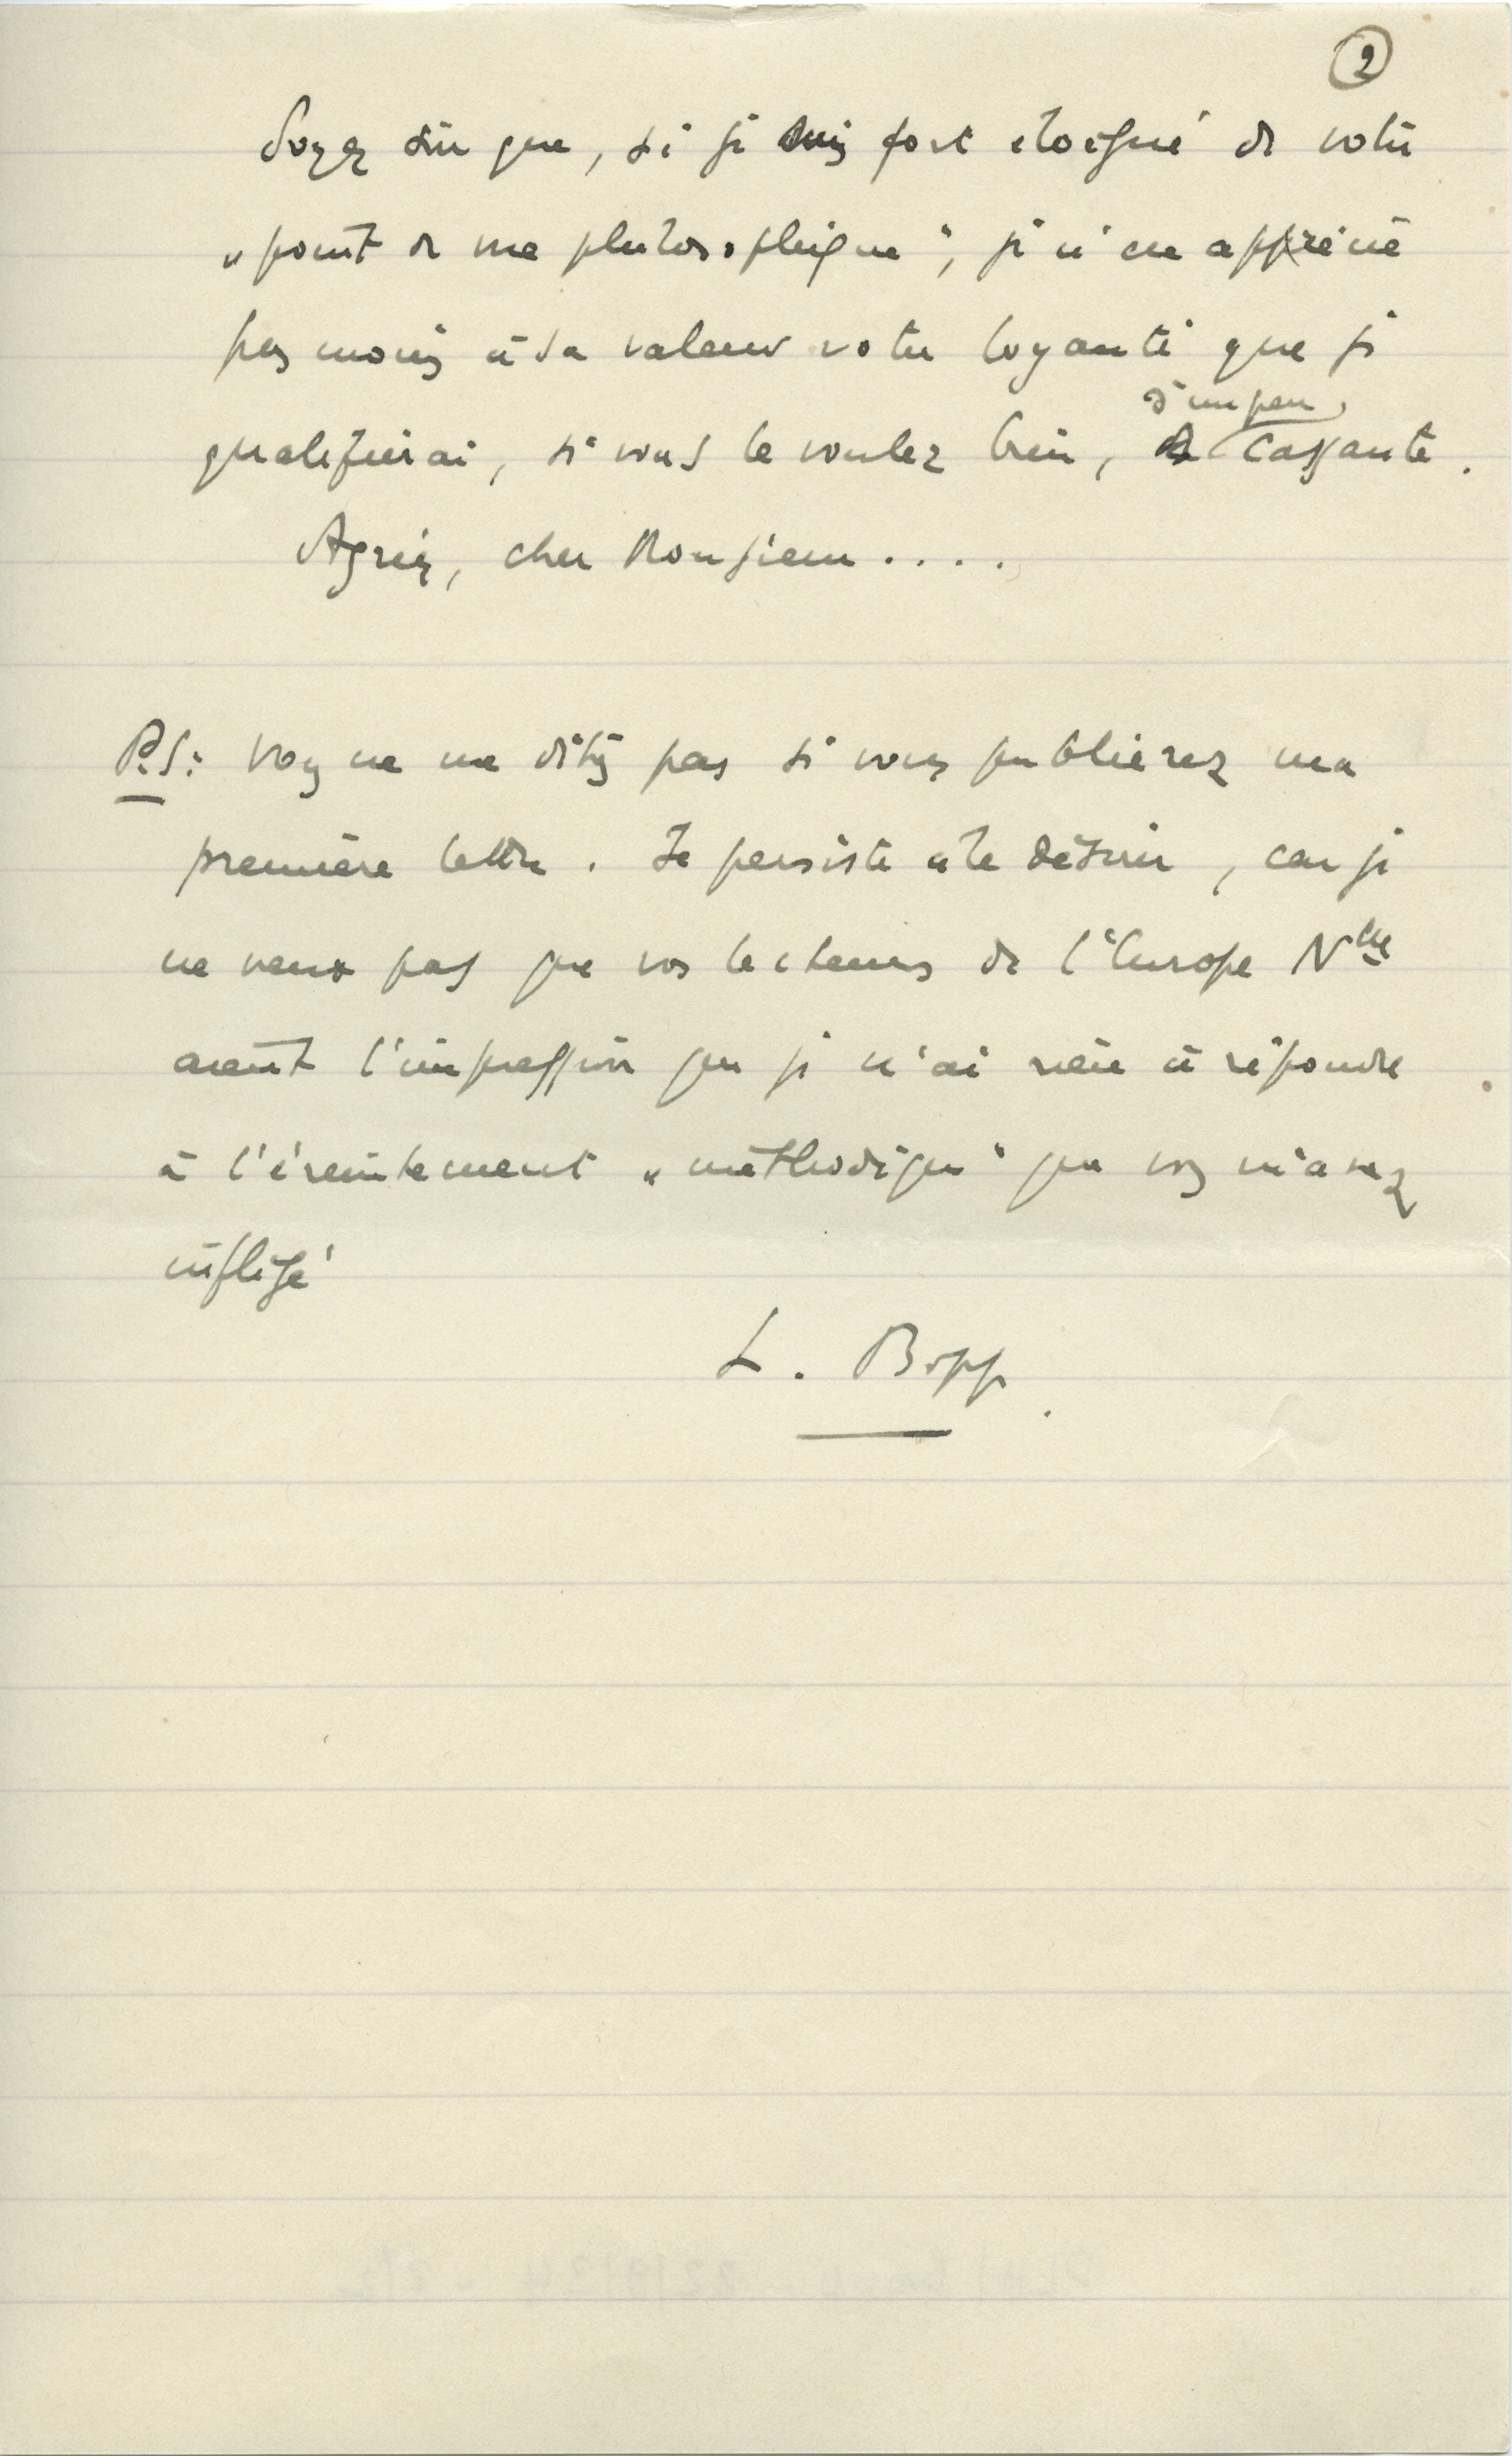 2
Soyez sûr que, si je suis fort éloigné de votre
„point de vue philosophique", je n'en apprécie
pas moins à sa valeur votre loyauté que je
d'un peu
qualifierai, si vous le voulez bien, cassante.
Agréez, cher Monsieur....
P.S: Vous ne me dites pas si vous publierez ma
première lettre. Je persiste à le désirer, car je
ne veux pas que vos lecteurs de l'Europe Nlle
aient l'impression que je n'ai rien à répondre
à l'éreintement „méthodique" que vous m'avez
infligé
L. Bopp.